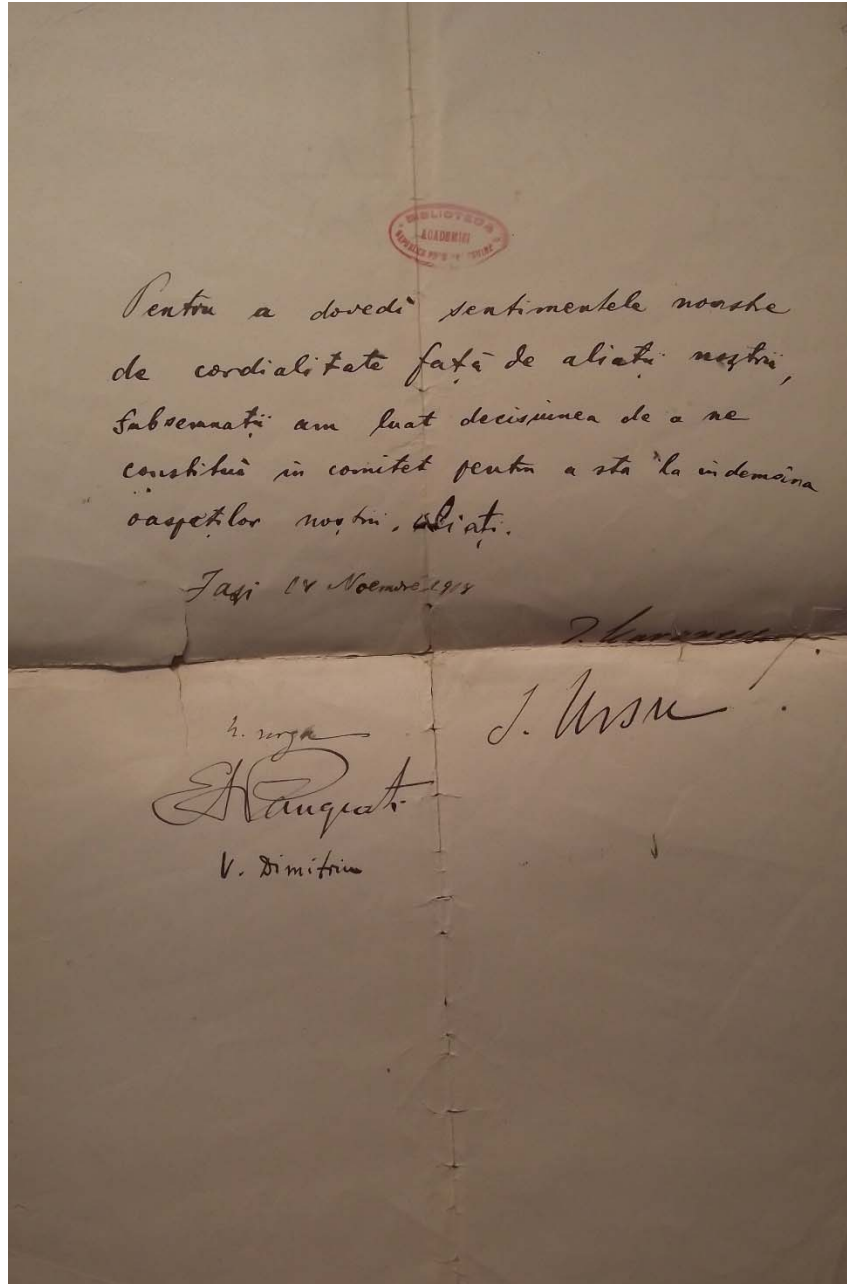 BIBLIOTECA
ACADEMIEI
Pentru a dovedì sentimentele noastre
de cordialitate faţă de aliaţii noştrii,
subsemnaţii am luat decisiunea de a ne
constituì in comitet pentru a sta la indemâna
oaspeţilor noştrii, aliaţi.
Iaşi 18 Noemvre 1918
N. Iorga
I. Ursu
V. Dimitriu